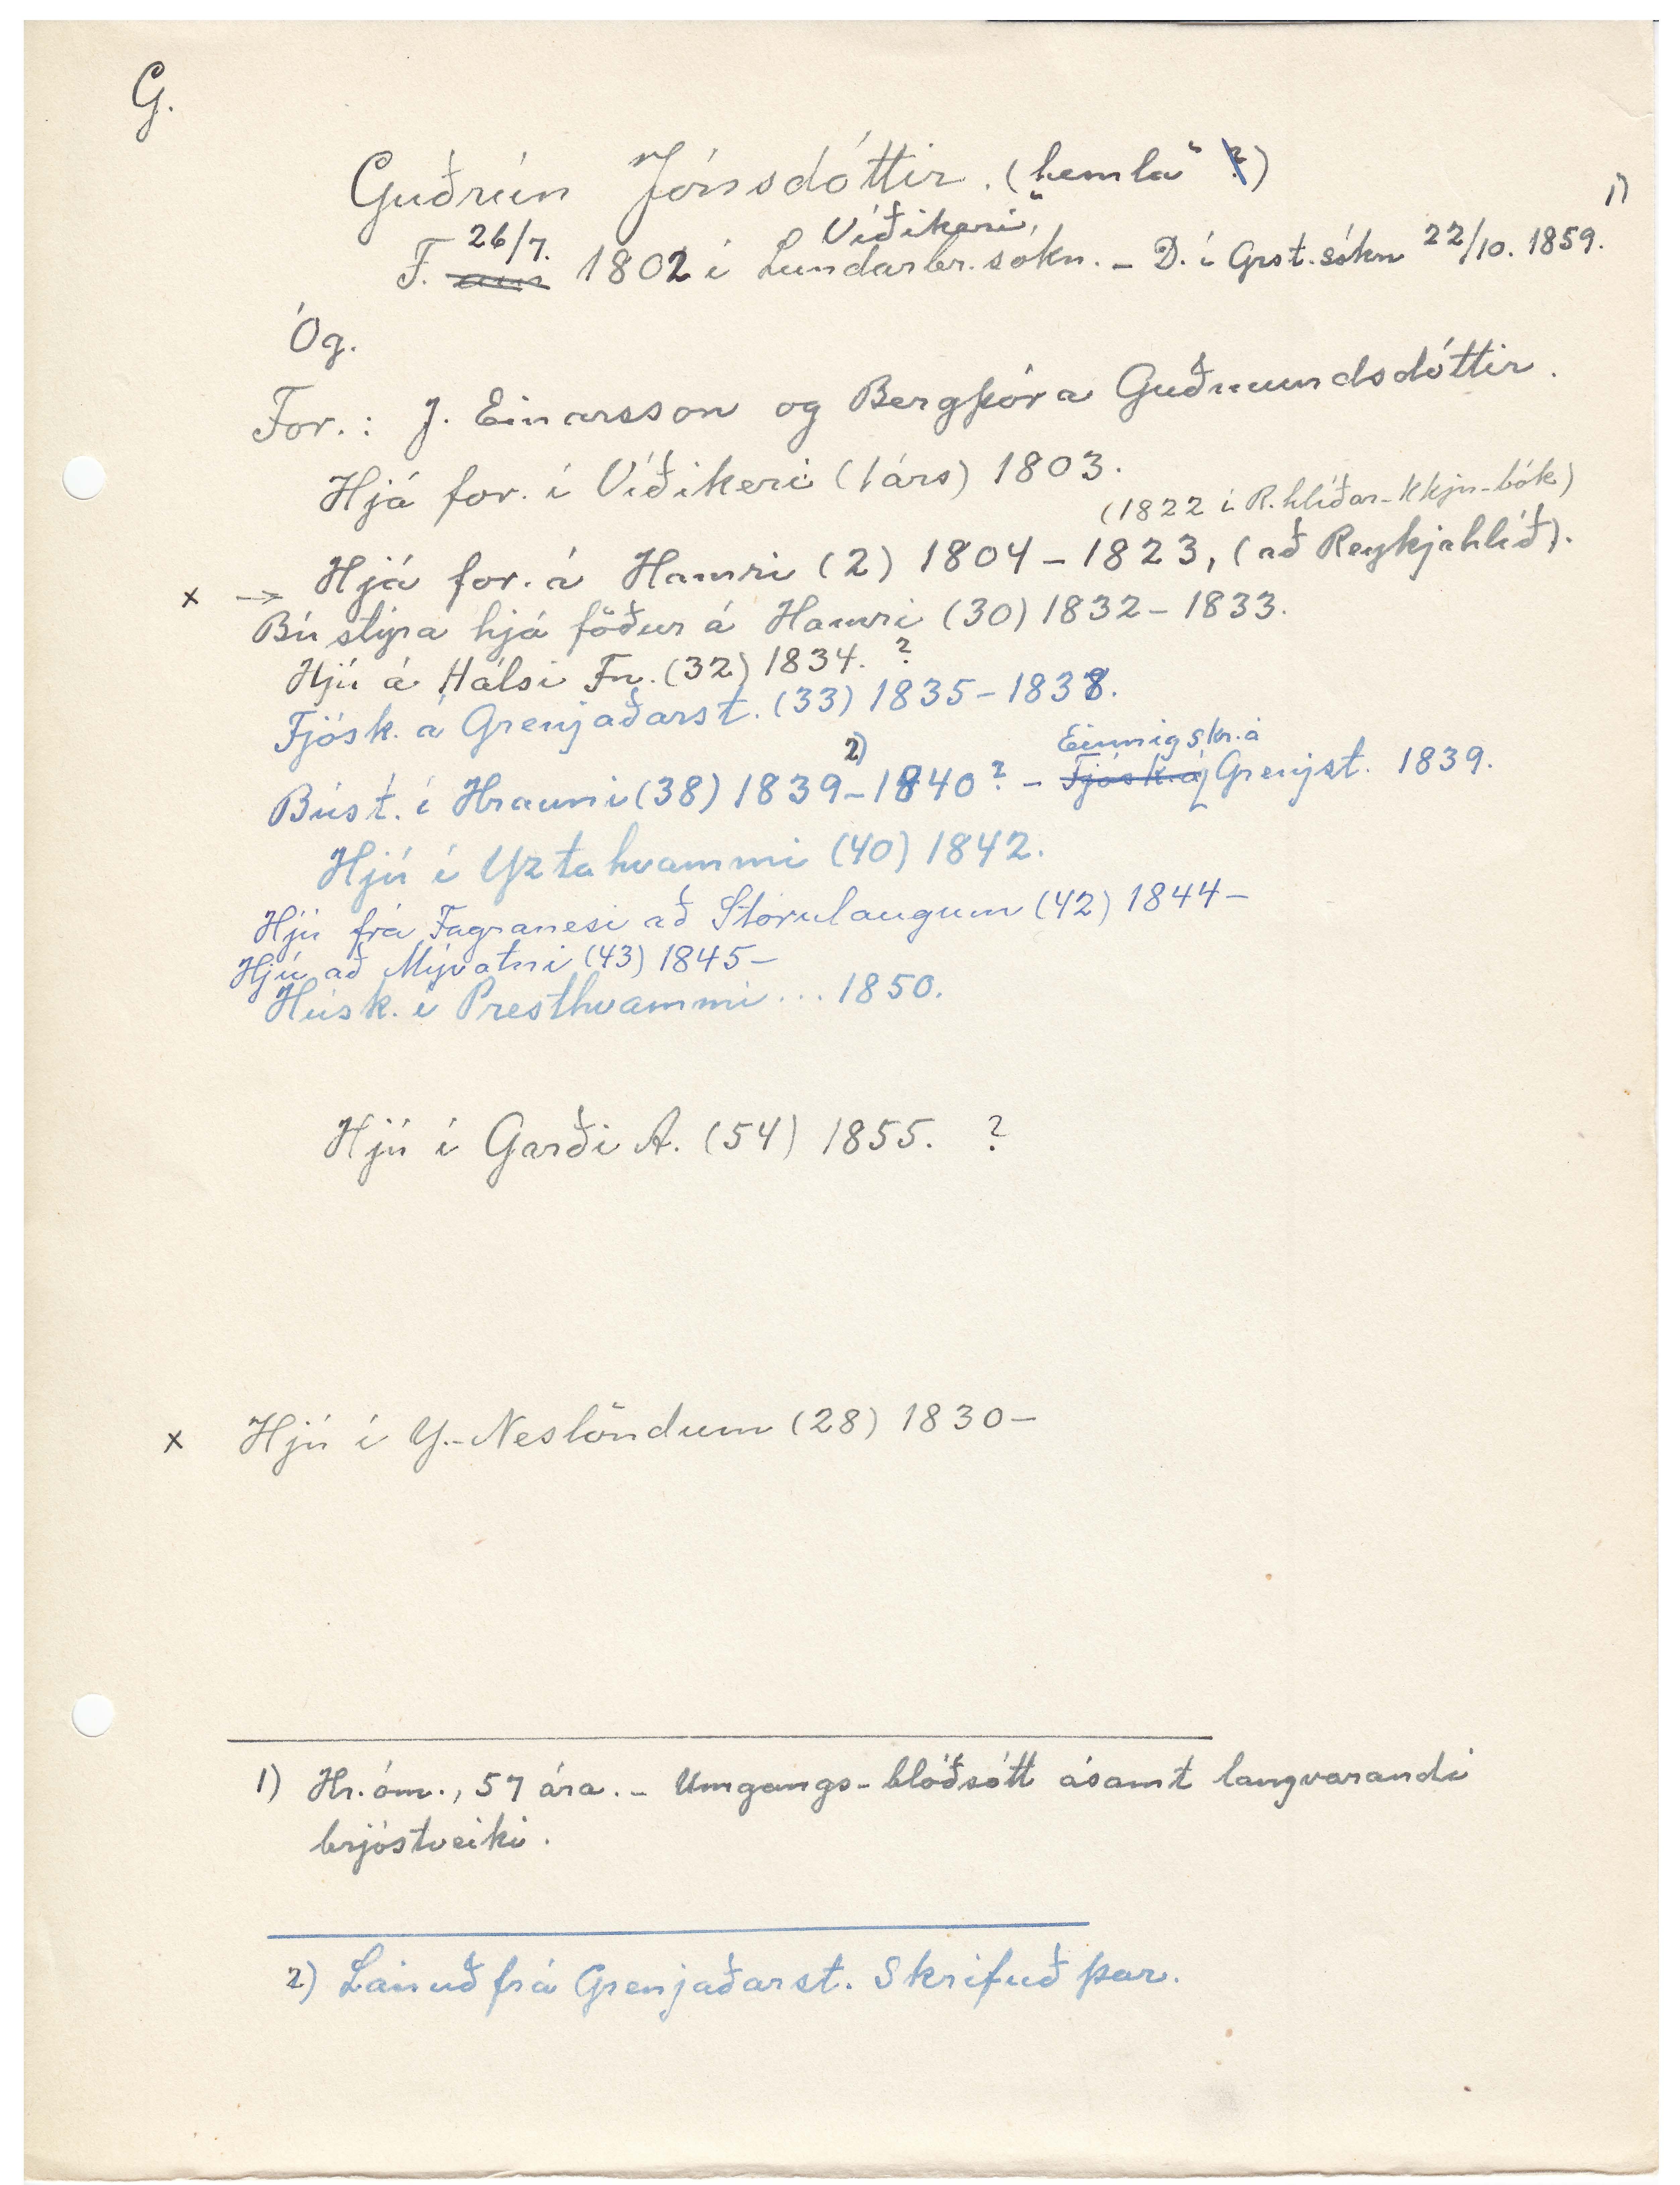 G.
Guðrún Jónsdóttir. („hemla“ ?)
26/7. Víðikeri,
F. 1802 í Lundarbr. sókn. – D. í Grst. sókn 22/10. 1859. 1)
Óg.
For.: J. Einarsson og Bergþóra Guðmundsdóttir.
Hjá for. í Víðikeri (1 árs) 1803.
(1822 í R.hlíðar-kkju-bók)
x → Hjá for. á Hamri (2) 1804 – 1823, (að Reykjahlíð).
Bústýra hjá föður á Hamri (30) 1832 – 1833.
Hjú á Hálsi Fn. (32) 1834. ?
Fjósk. á Grenjaðarst. (33) 1835 – 1838.
2) Einnig skr. á
Búst. í Hrauni (38) 1839 – 1840? – Fjósk. á Grenjst. 1839.
Hjú í Yztahvammi (40) 1842.
Hjú frá Fagranesi að Stórulaugum (42) 1844 –
Hjú að Mývatni (43) 1845 –
Húsk. í Presthvammi ... 1850.
Hjú í Garði A. (54) 1855. ?
x Hjú í Y.-Neslöndum (28) 1830 –
1) Hr. óm., 57 ára. – Umgangs-blóðsótt ásamt langvarandi
brjóstveiki.
2) Lánuð frá Grenjaðarst. Skrifuð þar.